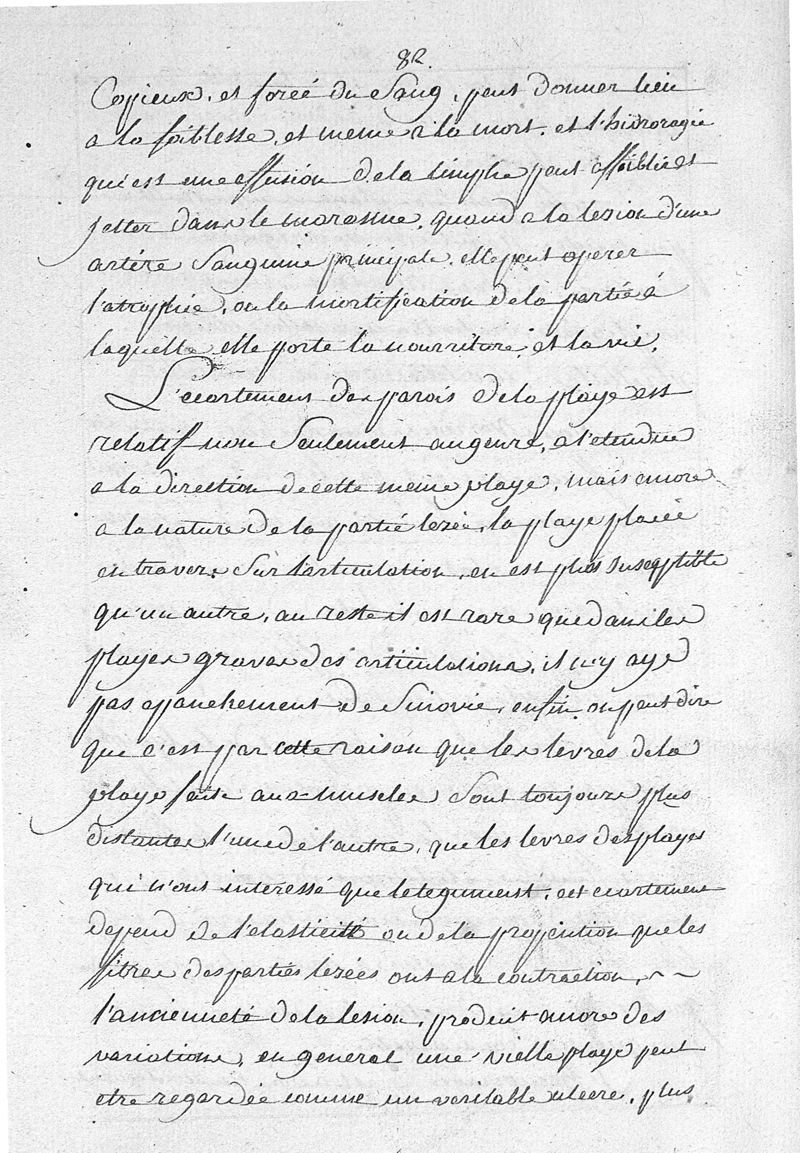 82
Copieux, et forcé du Sang, peut donner lieu
a la foiblesse, et meme a la mort, et l'hidroragie
qui est une effusion de la limphe peut affoiblir et
jetter dans le marasme, quand a la lezion d'une
artére Sanguine principale, elle peut operer
l'atrophie, ou la mortification de la partie à
laquelle elle porte la nourriture, et la vie.
L'ecartement des parois de la playe est
relatif non Seulement au genre, a l'etendue
a la direction de cette meme playe, mais encore
a la nature de la partie lezée, la playe placée
en travers Sur l'articulation, en est plus susceptible
qu'un autre, au reste il est rare que dans les
playes graves des articulations, il n'y aye
pas epanchement de Sinovie, enfin on peut dire
que c'est par cette raison que les levres de la
playe faite aux muscles Sont toujours plus
distantes l'une de l'autre, que les levres des playes
qui n'ont interessé que le tegument, cet ecartement
depend de l'elasticité ou de la projention que les
fibres des parties lezées ont a la contraction,
l'ancienneté de la lesion, produit encore des
variations, en general une vielle playe peut
etre regardée comme un veritable ulcere, plus